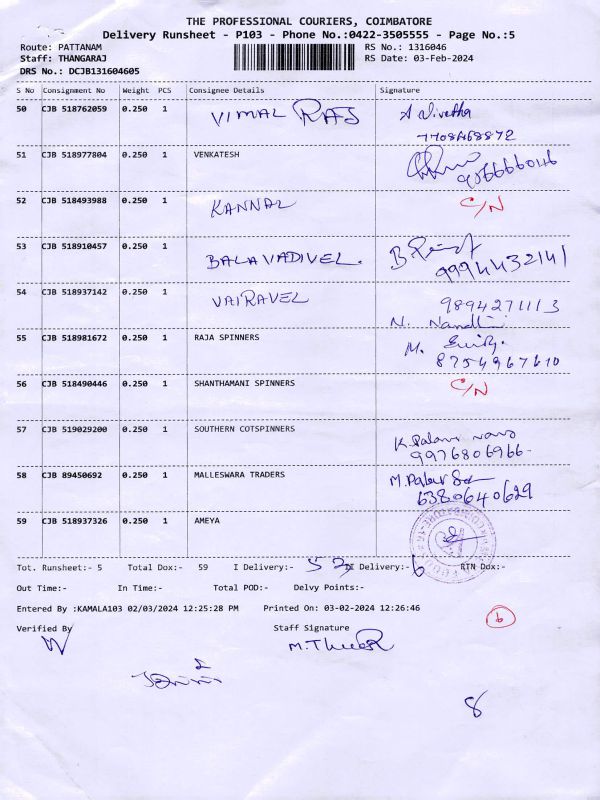 THE PROFESSIONAL COURIERS, COIMBATORE
Delivery Runsheet - P103 - Phone No.:0422-3505555 - Page No.:5
Route: PATTANAM RS No.: 1316046
Staff: THANGARAJ RS Date: 03-Feb-2024
DRS No.: DCJB131604605
S No Consignment No Weight PCS Consignee Details Signature
50 CJB 518762059 0.250 1 VIMAL RAJ A Nivetha
7708468872
51 CJB 518977804 0.250 1 VENKATESH
9566666046
52 CJB 518493988 0.250 1 KANNAL C/N
53 CJB 518910457 0.250 1 BALAVADIVEL. B
9994432141
54 CJB 518937142 0.250 1 VAIRAVEL 9894271113
N. Nandhi
55 CJB 518981672 0.250 1 RAJA SPINNERS M.
8754967610
56 CJB 518490446 0.250 1 SHANTHAMANI SPINNERS C/N
57 CJB 519029200 0.250 1 SOUTHERN COTSPINNERS
K.
9976806966
58 CJB 89450692 0.250 1 MALLESWARA TRADERS M.
6380640629
59 CJB 518937326 0.250 1 AMEYA
Tot. Runsheet:- 5 Total Dox:- 59 I Delivery:- 53 II Delivery:- 6 RTN Dox:-
Out Time:- In Time:- Total POD:- Delvy Points:-
Entered By :KAMALA103 02/03/2024 12:25:28 PM Printed On: 03-02-2024 12:26:46
6
Verified By Staff Signature
8